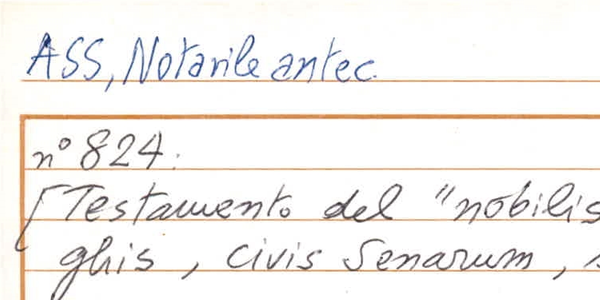 ASS, Notarile antec.
n° 824.
[Testamento del "nobilis
ghis, civis Senarum,